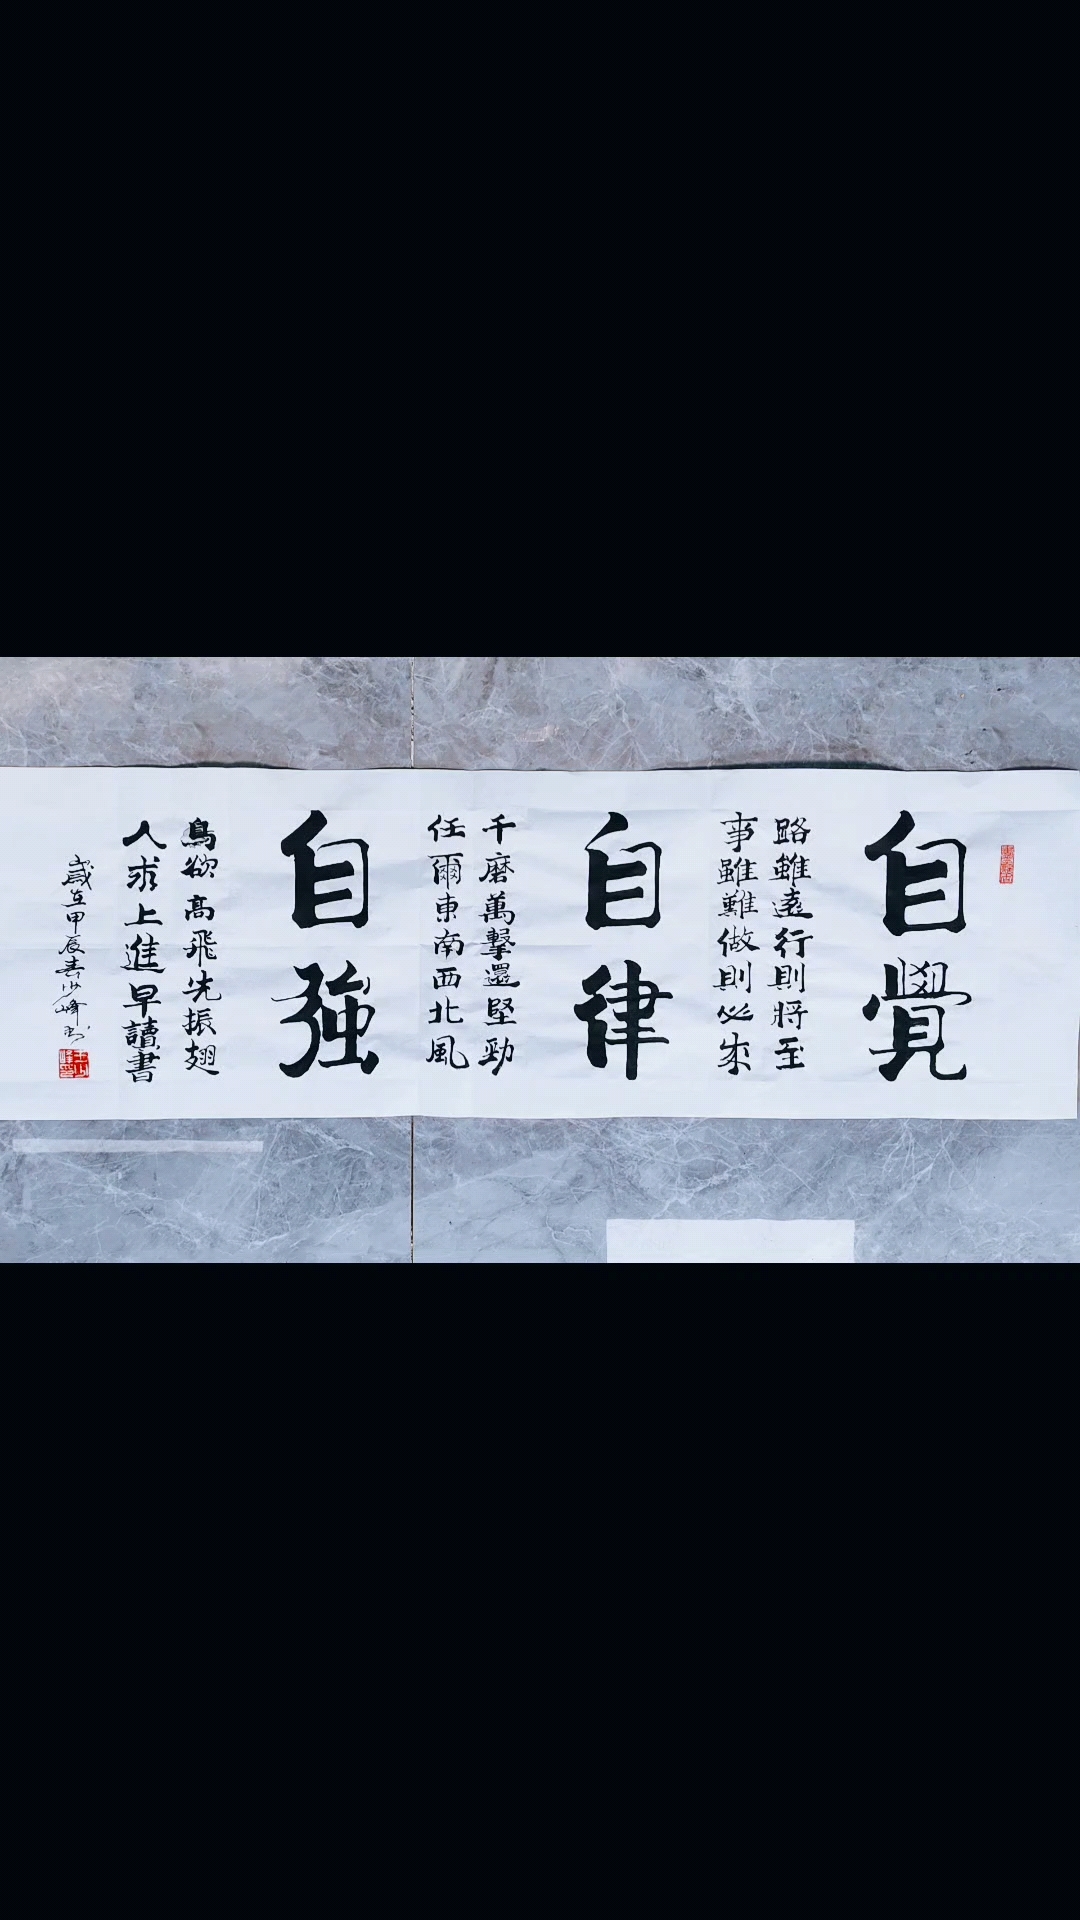 自覺
路雖遠行則將至
事雖難做則必
自律
千磨萬擊還堅勁
任爾東南西北風
自強
鳥欲高飛先振翅
人求上進早讀書
歲在甲辰春少峰書
王少峰印